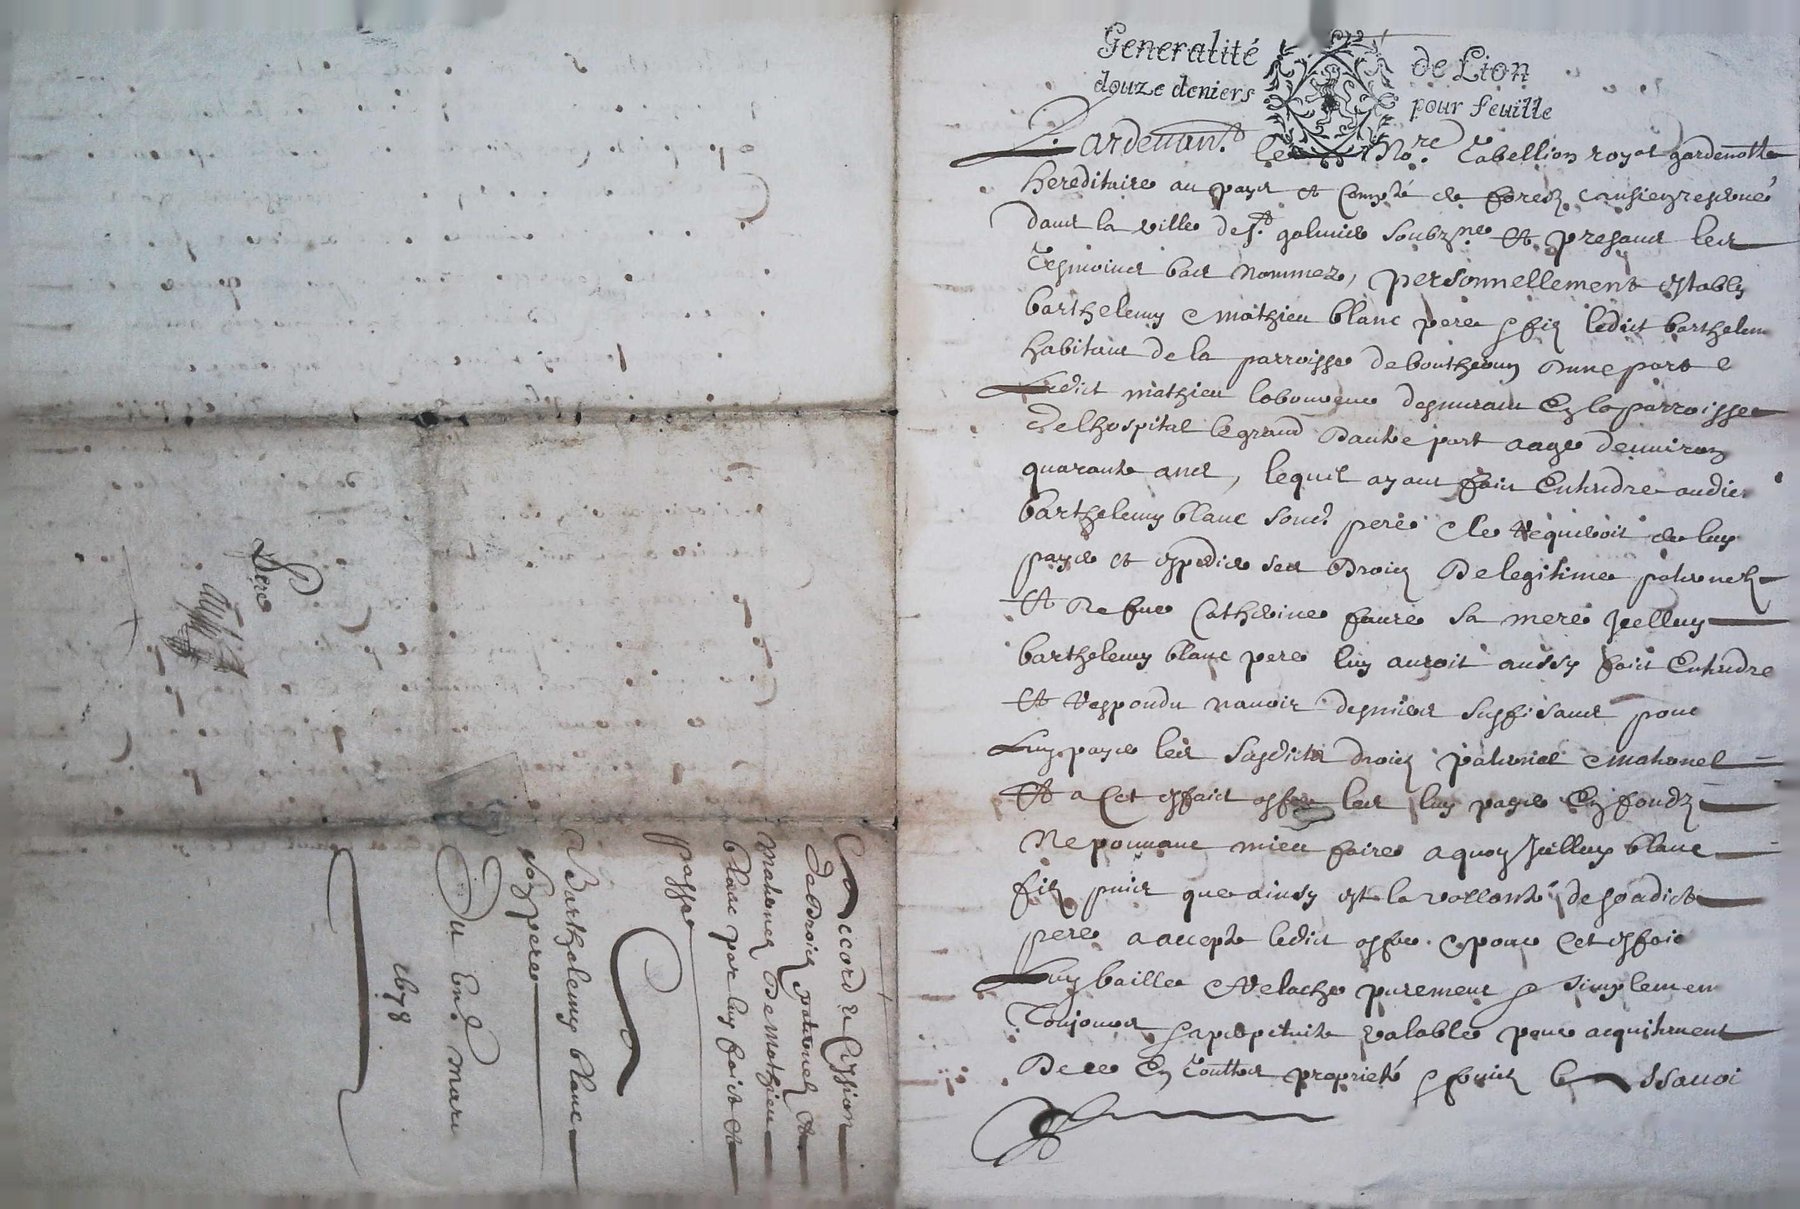 Generalité de Lion
douze deniers pour feuille
Pardevant le No.re Tabellion royal gardenotte
hereditaire au pays et Compté de forestz
dans la ville de St. galmier soubz.ne et presans les
Tesmoins bas nommez, personnellement estably
barthelemy e mathieu blanc pere e filz ledict barthelem
habitant de la parroisse de boutheon dune part e
Ledict mathieu laboureur demurant En la parroisse
de lhospital le grand dautre part aage denviron
quarante ans, lequel ayant faict Entendre audict
barthelemy blanc sond. pere e le requeroit de luy
payer et expedier ses droicz de legitime paternelz
et de fue Catherine faure sa mere Icelluy
barthelemy blanc pere luy auroit aussy faict Entendre
et respondu navoir deniers suffisans pour
Luy payer les susdicts droicz paternel e maternel
et a Cet effaict offre les luy payer En fondz
Ne pouvant mieu faire a quoy Icelluy blanc
filz puis que ainsy est la vollonté de sondict
pere a accepte ledict offre. e pour Cet effaic
Luy baille e relache purement e simplemen
Toujours e a perpetuite valable pour acquitement
De ce En Toutte propriete e
Accord et Cession
Des droicz paternel et
maternel De Mathieu
blanc par luy faict et
passe
a Barthelemy blanc
son pere
Du En.e mars
1678